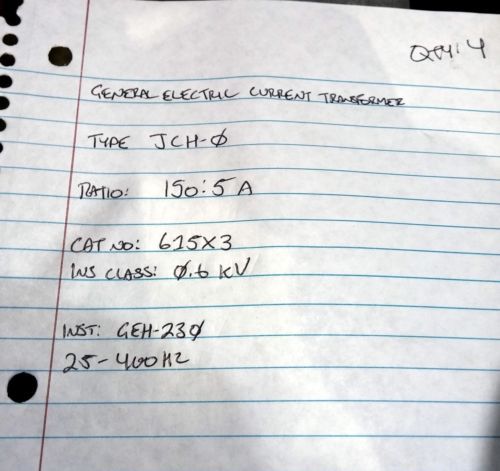 QTY: 4
GENERAL ELECTRIC CURRENT TRANSFORMER
TYPE JCH-0
RATIO: 150:5 A
CAT NO: 615X3
INS CLASS: 0.6 KV
INST: GEH-230
25-400 HZ